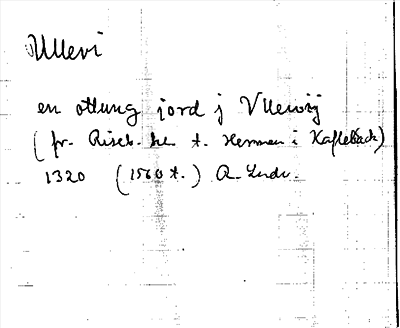 Ullevi
en ottung jord j Vlleuij
(fr. Riseb. kl. t. Hemmen i Kaflebäck)
1320 (1560 t.) A. Lindv.